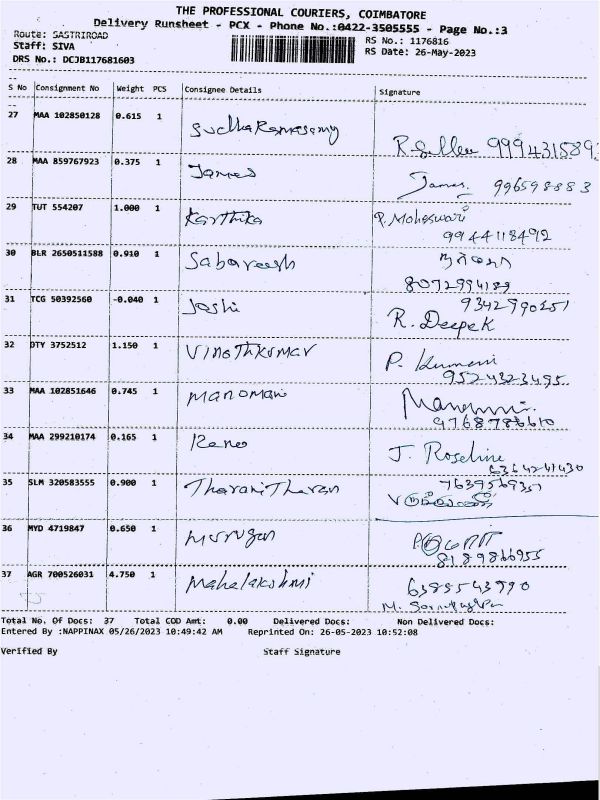 THE PROFESSIONAL COURIERS, COIMBATORE
Delivery Runsheet - PCX - Phone No.:0422-3505555 - Page No.:3
Route: SASTRIROAD
Staff: SIVA
DRS No.: DCJB117681603
RS No.: 1176816
RS Date: 26-May-2023
S No Consignment No Weight PCS Consignee Details Signature
27 MAA 102850128 0.615 1 Sudha Ramasamy 9994431589
28 MAA 859767923 0.375 1 James James. 996598883
29 TUT 554207 1.000 1 Karthika P. Maheswari
9944118492
30 BLR 2650511588 0.910 1 Sabareesh
8072994189
31 TCG 50392560 -0.040 1 Joshi 9342990251
R. Deepek
32 DTY 3752512 1.150 1 Vinothkumar P. Kumari
9524323495
33 MAA 102851646 0.745 1 manomani
9768786610
34 MAA 299210174 0.165 1 J. Roseline
6364241430
35 SLM 320583555 0.900 1 TharaniTharan 7639569351
36 MYD 4719847 0.650 1 Murugan
8189866955
37 AGR 700526031 4.750 1 Mahalakshmi 6385543990
Total No. Of Docs: 37 Total COD Amt: 0.00 Delivered Docs: Non Delivered Docs:
Entered By :NAPPINAX 05/26/2023 10:49:42 AM Reprinted On: 26-05-2023 10:52:08
Verified By Staff Signature